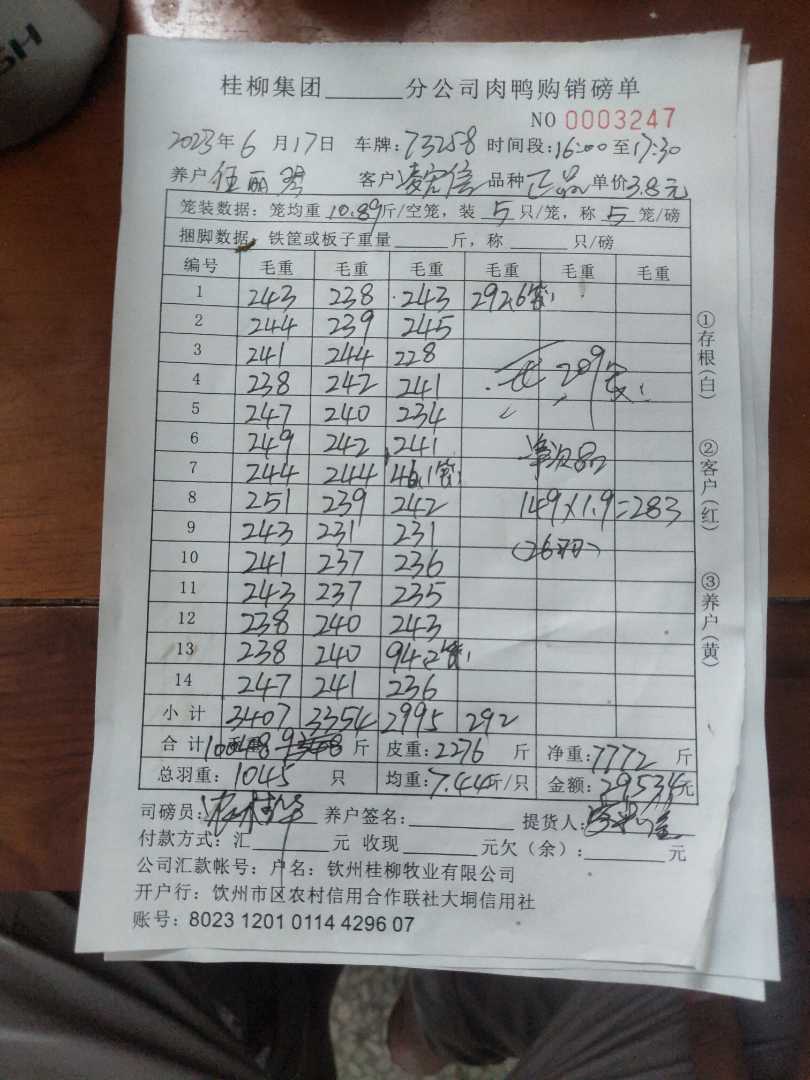 SH
桂柳集团______分公司肉鸭购销磅单
NO 0003247
2023年6月17日 车牌:73258 时间段:16:00至17:30
养户 丽 客户 凌 信 品种 正品 单价3.8元
笼装数据:笼均重 10.89斤/空笼,装 5 只/笼,称 5 笼/磅
捆脚数据,铁筐或板子重量______斤,称______只/磅
编号 毛重 毛重 毛重 毛重 毛重 毛重
1 243 238 243 292.6笼
2 244 239 245
3 241 244 228
4 238 242 241 209笼
5 247 240 234
6 249 242 241
7 244 244 46.1笼
8 251 239 242 149×1.9=283
9 243 231 231
10 241 237 236
11 243 237 235
12 238 240 243
13 238 240 94.2笼
14 247 241 236
小计 3407 3354 2995 292
合计 10048 斤 皮重:2276 斤 净重:7772 斤
总羽重:1045 只 均重:7.44斤/只 金额:29534元
司磅员: 养户签名:______ 提货人:
付款方式:汇______元 收现______元欠(余):______元
公司汇款帐号:户名:钦州桂柳牧业有限公司
开户行:饮州市区农村信用合作联社大垌信用社
账号:8023 1201 0114 4296 07
①存根(白)
②客户(红)
③养户(黄)